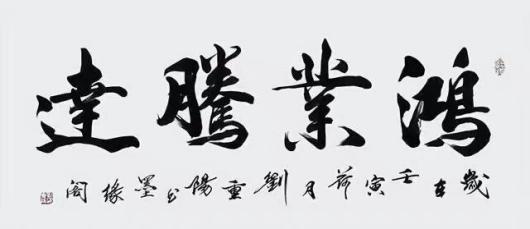 鴻業騰達
歲在壬寅荷月劉重陽书墨緣閣